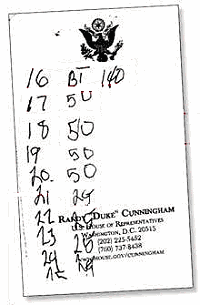 16 BT 140
17 50
18 50
19 50
20 50
21 25
22
RANDY "DUKE" CUNNINGHAM
U.S. HOUSE OF REPRESENTATIVES
23
WASHINGTON, D.C. 20515
(202) 225-5452
24
(760) 737-8438
HOUSE.GOV/CUNNINGHAM
25